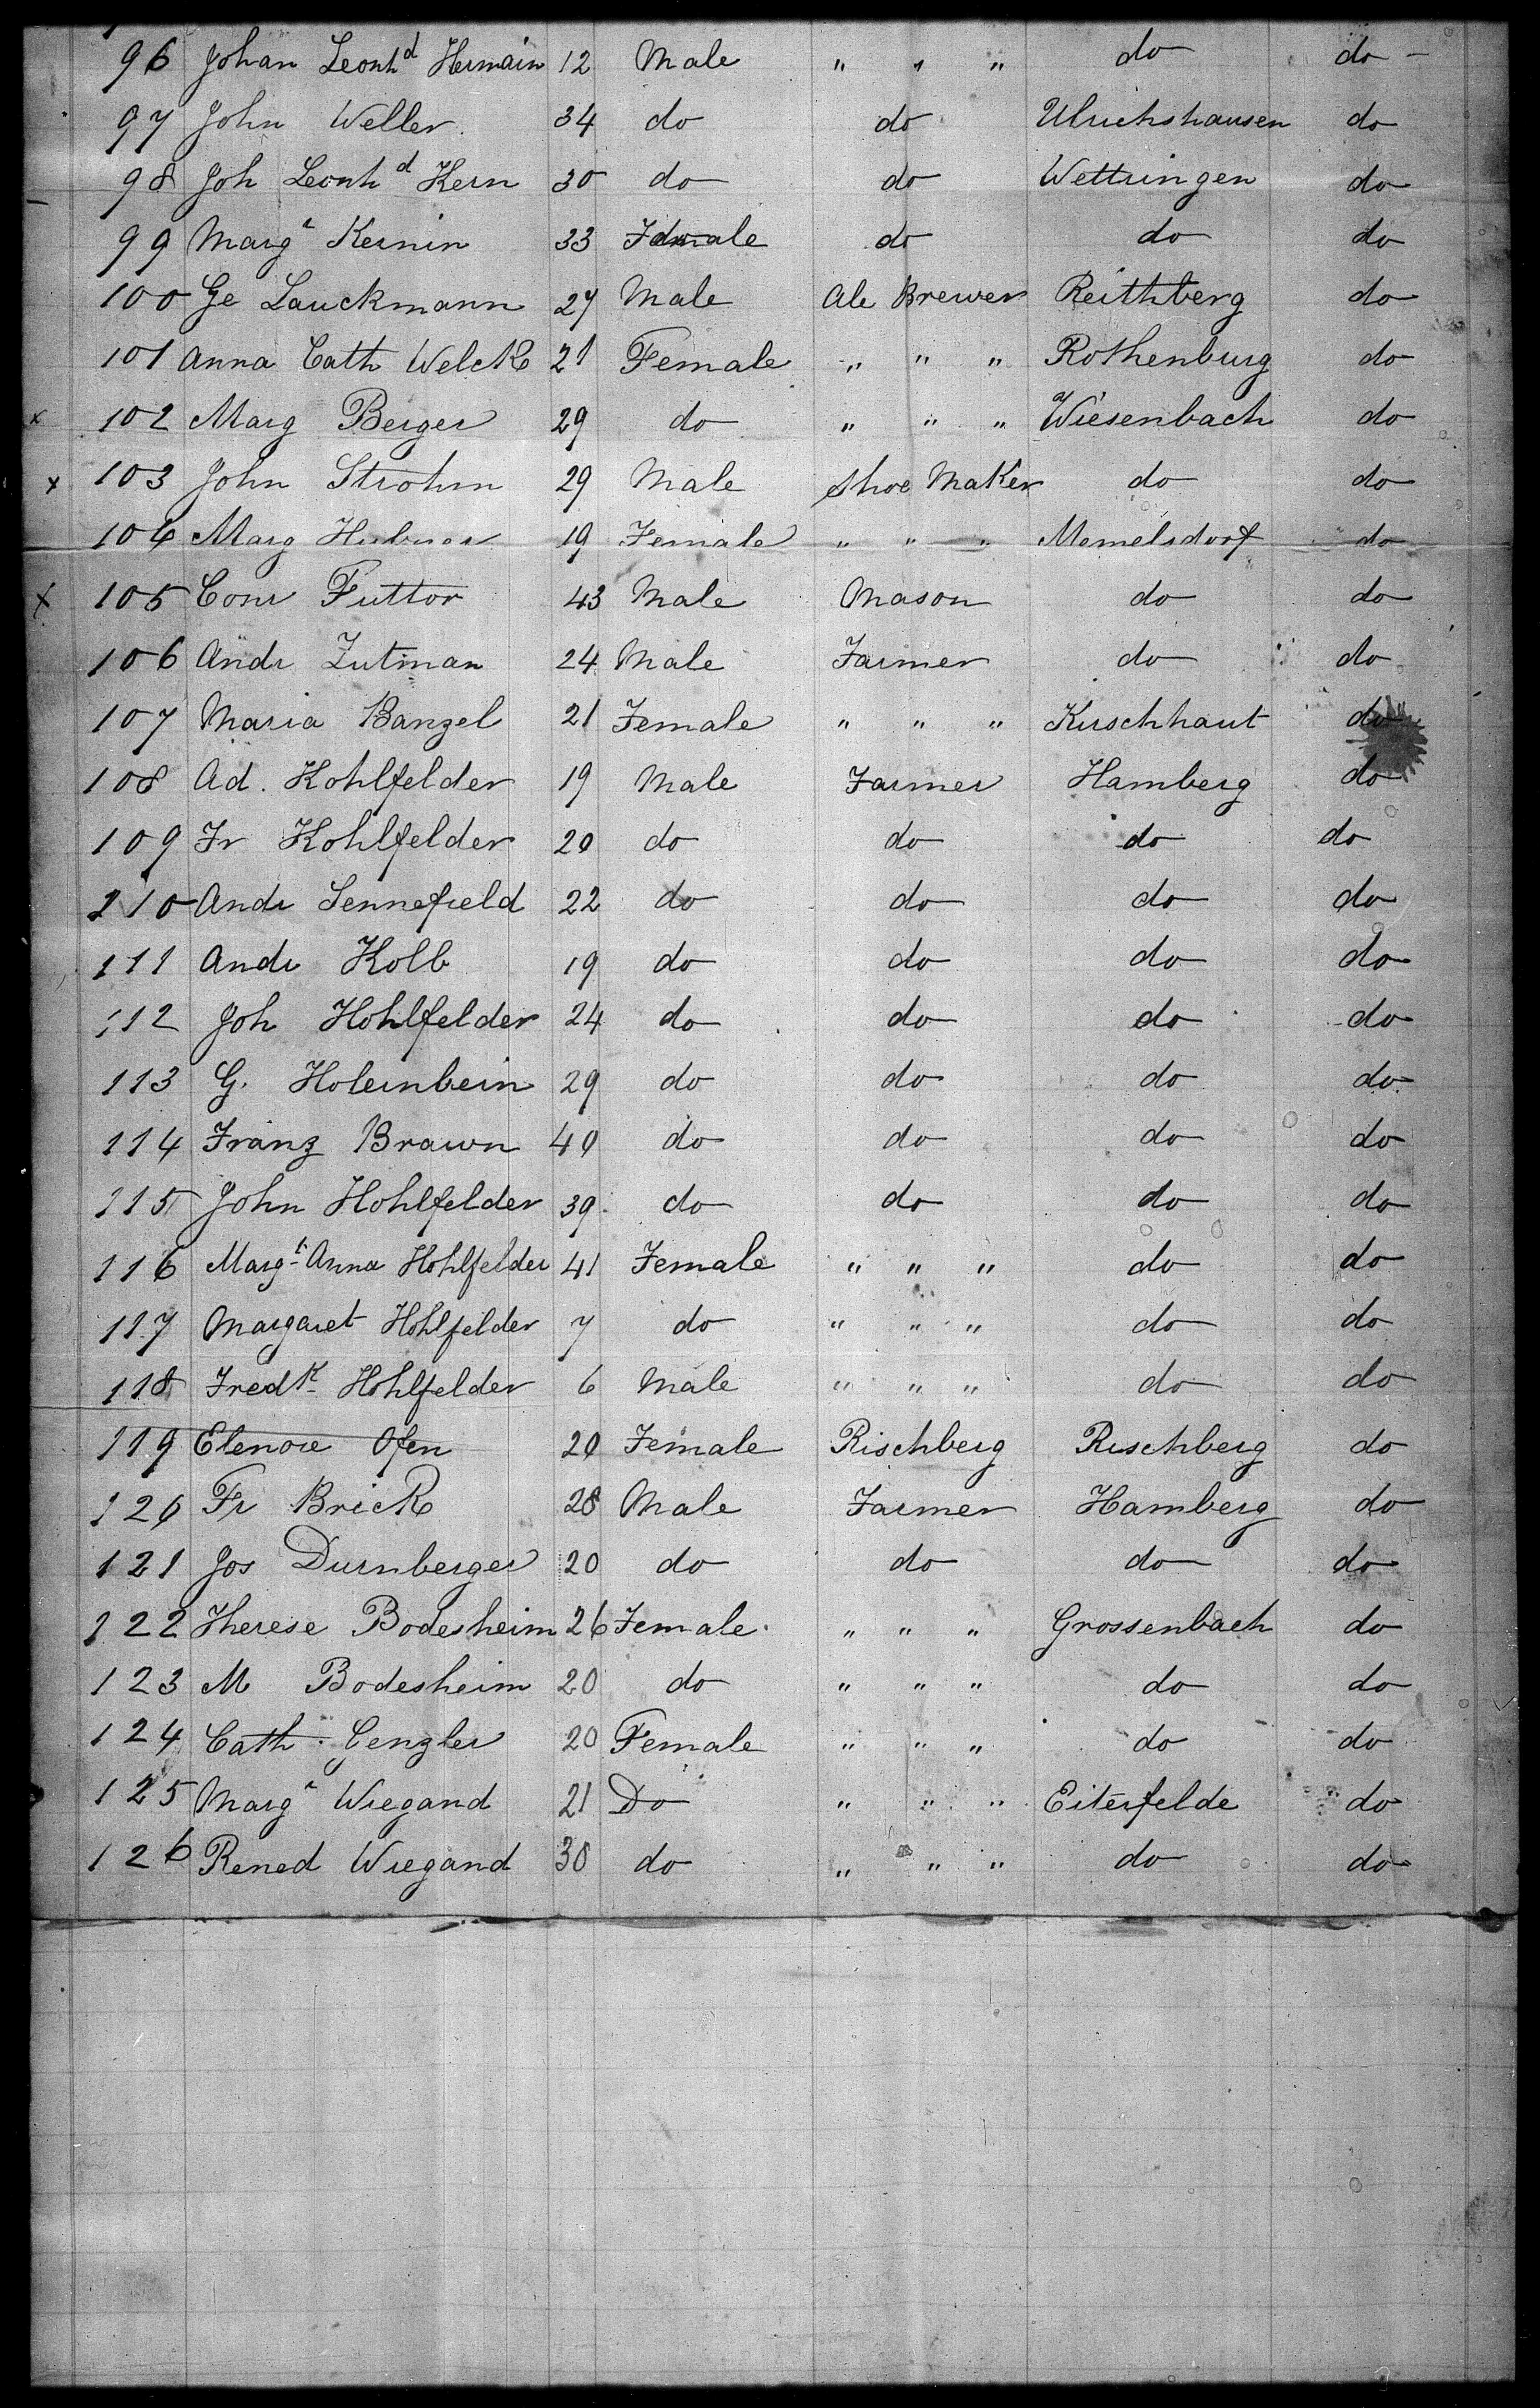 96 Johan Leonhd Hermain 12 Male " " " do do
97 John Weller 34 do do Ulrichshausen do
98 Joh Leonhd Kern 30 do do Wettringen do
99 Margr Kernin 33 Female do do do
100 Ge Lauckmann 27 Male Ale Brewer Reithberg do
101 Anna Cath Welck 21 Female " " " Rothenburg do
x 102 Marg Berger 29 do " " " Wiesenbach do
x 103 John Strohm 29 Male Shoe Maker do do
104 Marg Hubner 19 Female " " " Memelsdorf do
x 105 Conr Futtor 43 Male Mason do do
106 Andr Zutman 24 Male Farmer do do
107 Maria Banzel 21 Female " " " Kirschhaut do
108 Ad. Kohlfelder 19 Male Farmer Hamberg do
109 Fr Kohlfelder 20 do do do do
110 Andr Sennefield 22 do do do do
111 Andr Kolb 19 do do do do
112 Joh Hohlfelder 24 do do do do
113 G. Holeinbein 29 do do do do
114 Franz Brawn 40 do do do do
115 John Hohlfelder 39 do do do do
116 Margt Anna Hohlfelder 41 Female " " " do do
117 Margaret Hohlfelder 7 do " " " do do
118 Fredk Hohlfelder 6 Male " " " do do
119 Elenore Ofen 20 Female Rischberg Rischberg do
120 Fr Brick 28 Male Farmer Hamberg do
121 Jos Durnberger 20 do do do do
122 Therese Bodesheim 26 Female " " " Grossenbach do
123 M Bodesheim 20 do " " " do do
124 Cath Genzler 20 Female " " " do do
125 Margr Wiegand 21 Do " " " Eiterfelde do
126 Rened Wiegand 30 do " " " do do